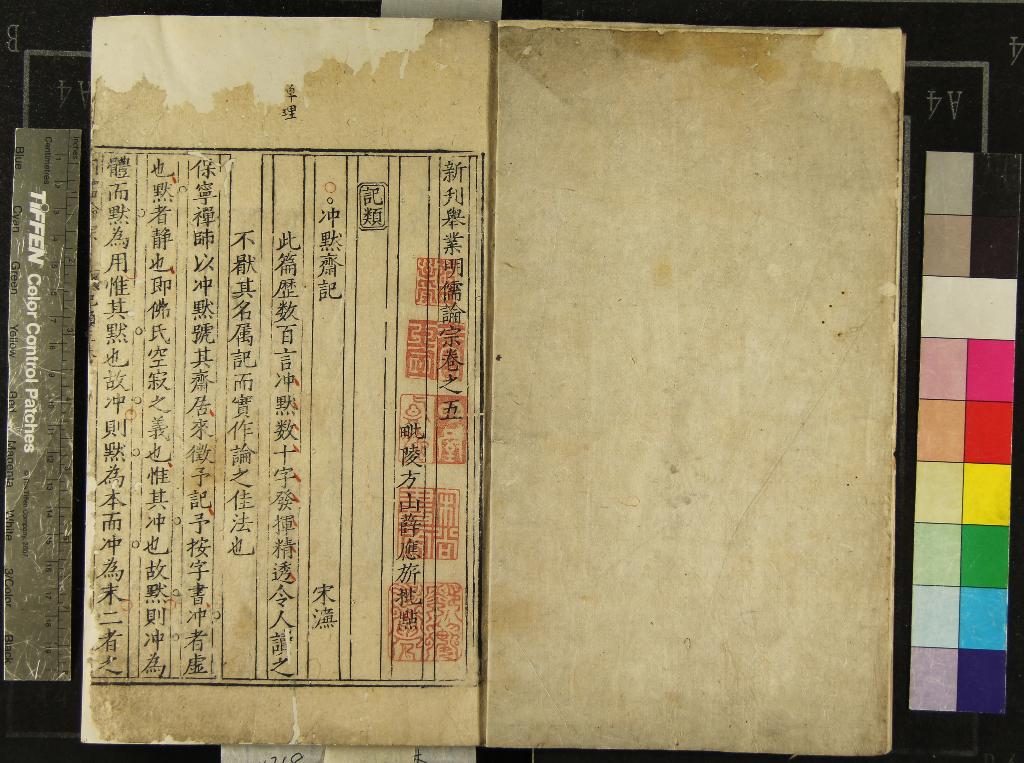 新刋舉業明儒論宗卷之五
毗陵方山薛應旂批點
記類
冲黙齋記
宋濂
此篇歷数百言冲黙数十字發揮精透令人讀之
不猒其名属記而實作論之佳法也
保寧禪師以冲黙號其齋居來徵予記予按字書冲者虛
也黙者静也即佛氏空寂之義也惟其冲也故黙則冲為
體而黙為用惟其黙也故冲則黙為本而冲為末二者之
單理
A4
A4
B
TIFFEN Color Control Patches
Inches
Centimetres
Blue
Cyan
Green
Yellow
Red
Magenta
White
3/Color
Black